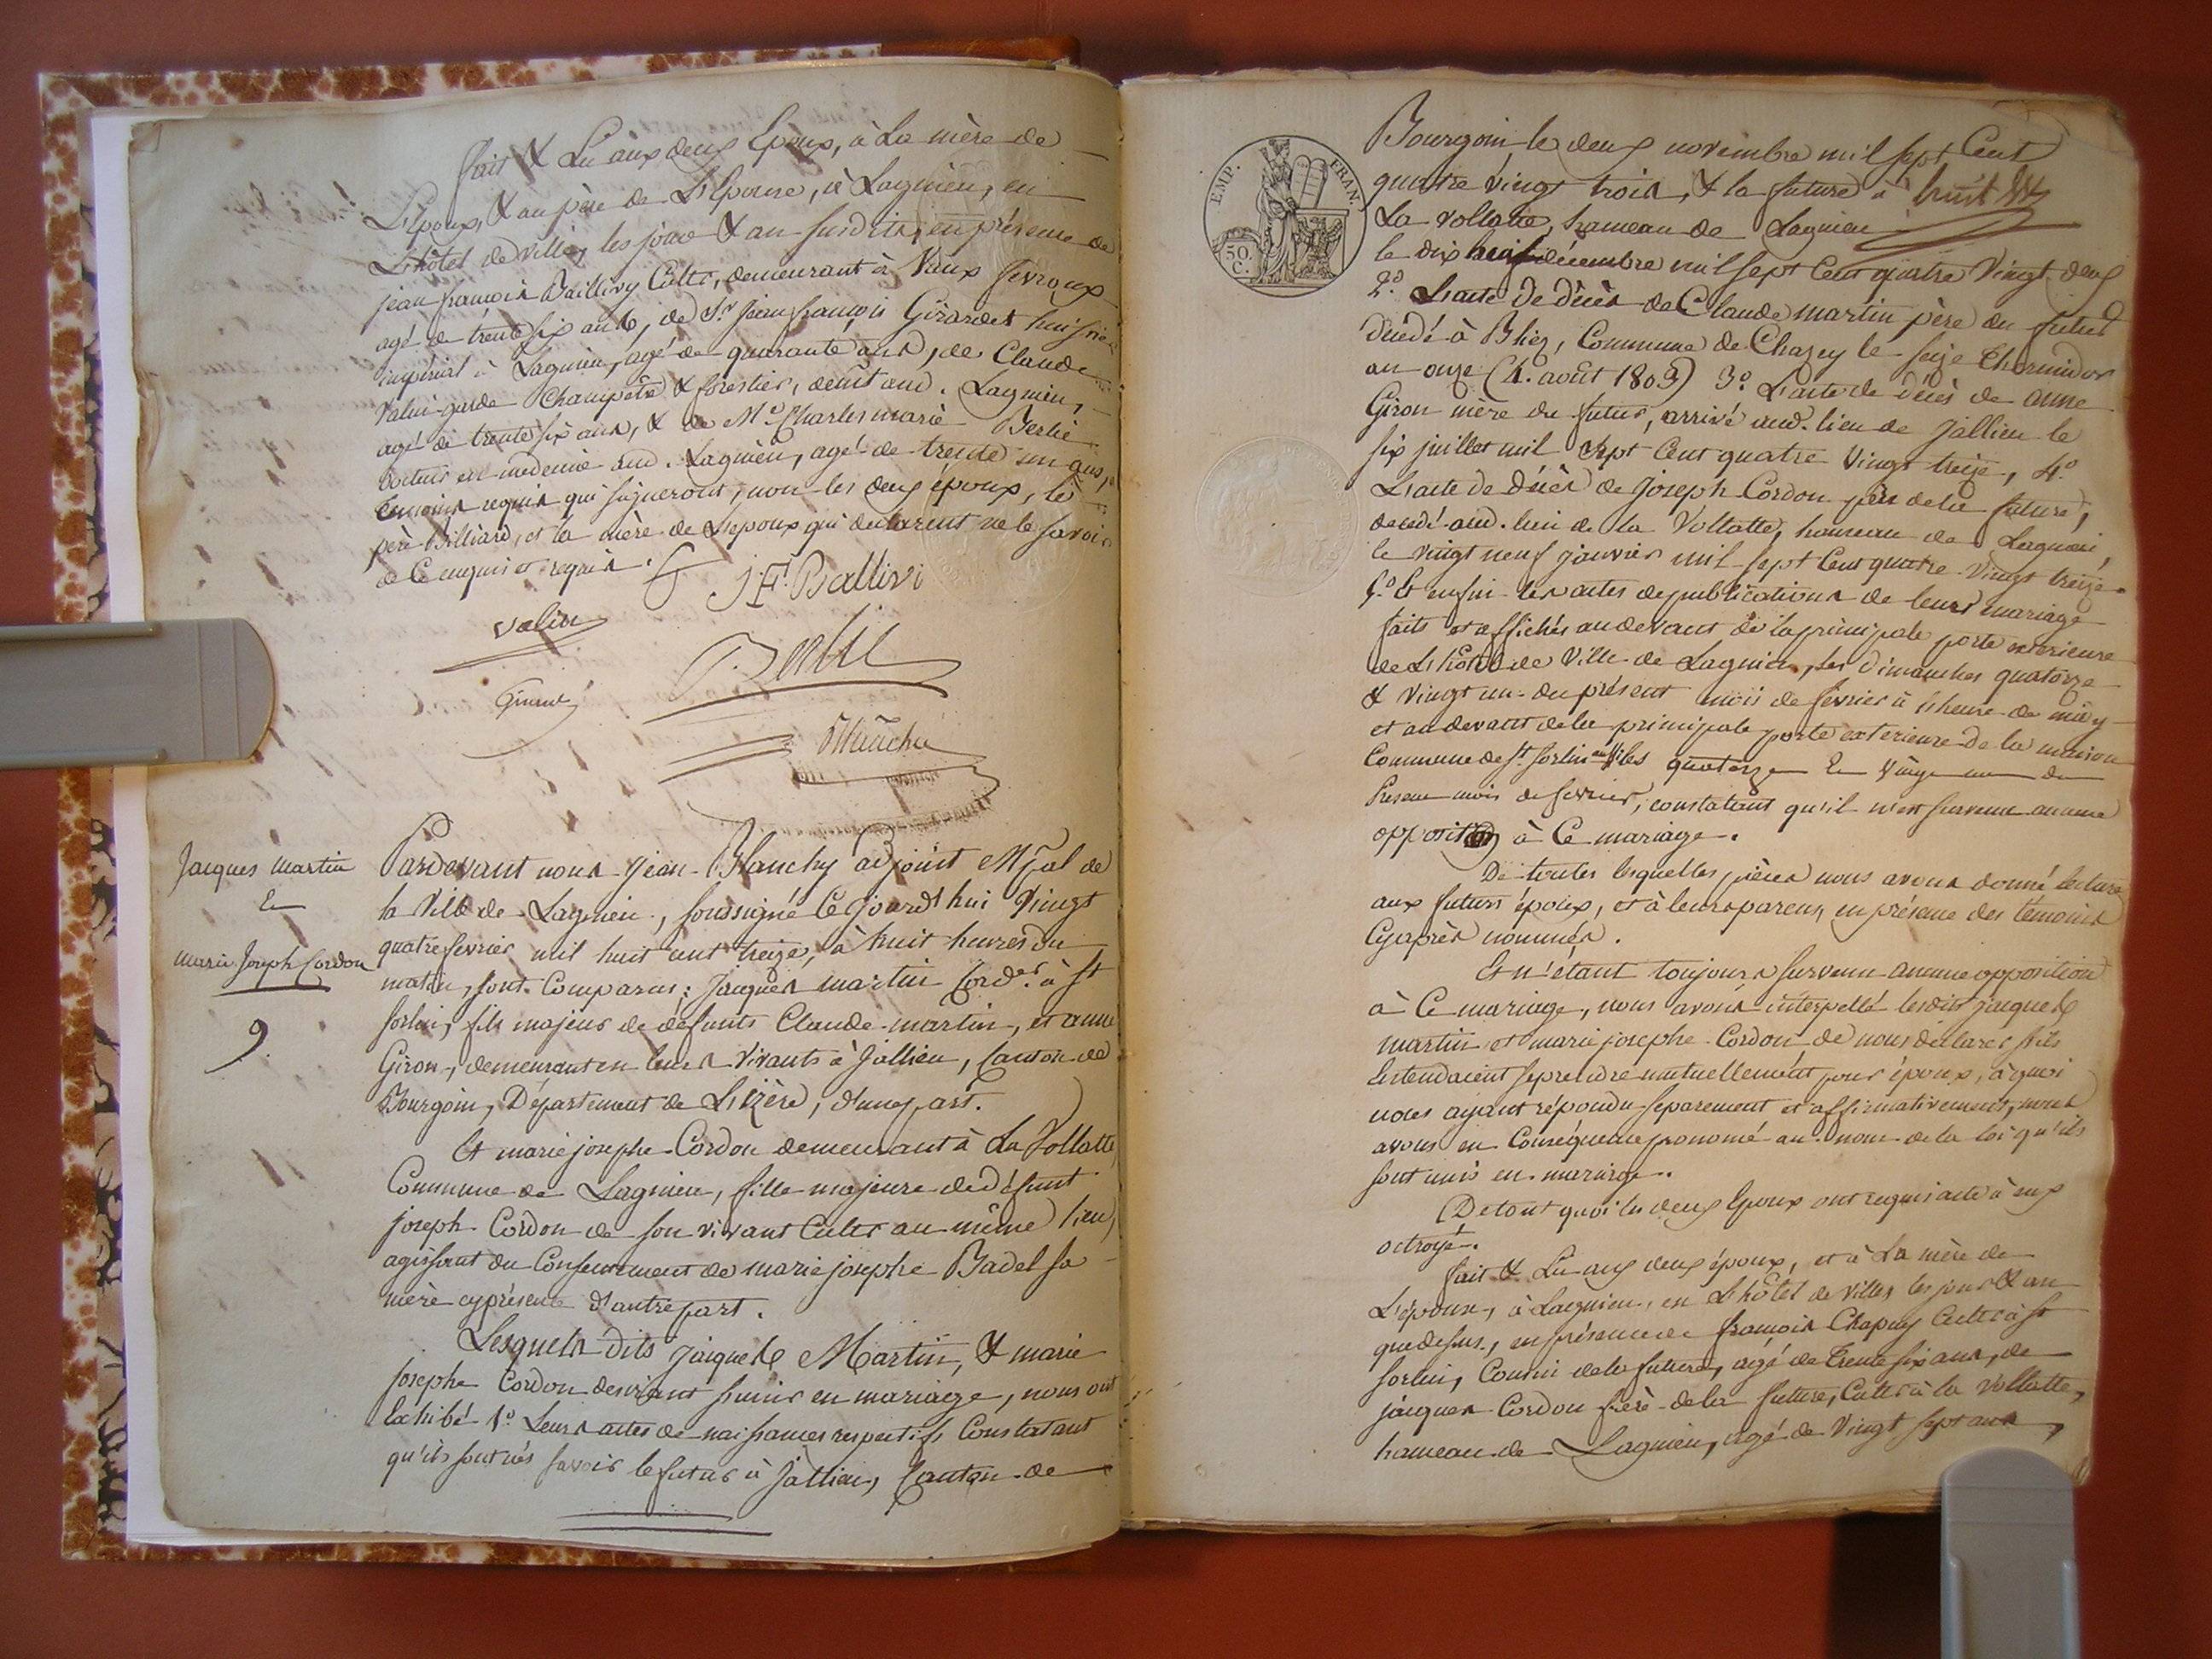 fait & Lu aux deux Epoux, à La mère de
L'Epoux, & au père de L'Epouse, à Lagnieu, en
L'hôtel de ville, les jour & an susdits, en présence de
jean françois Baillivy Cultr, demeurant à Vaux fevroux
agé de trente six ans, de Sr jean françois Girardet huissier
impérial à Lagnieu, agé de quarante ans, de Claude
Valin garde Champêtre & forestier, demt aud. Lagnieu,
agé de trente six ans, & de Mr Charles marie Berlié
docteur en medecine aud. Lagnieu, agé de trente un ans,
temoins requis qui signeront, non les deux époux, le
père Billiard, et la mère de L'epoux qui declarent ne le savoir
de Ce enquis et requis.
J F. Ballivi
Valin
Berlié
Girardet
Blanchy
Jacques Martin
Et
marie Joseph Cordon
9.
Pardevant nous Jean Blanchy adjoint Mpal de
la Ville de Lagnieu, soussigné Ce jourd'hui Vingt
quatre fevrier mil huit cent treize, à huit heures du
matin, sont Comparus: Jacques martin Cordr. à St
sorlin, fils majeur de défunts Claude martin, et anne
Giron, demeurant en leurs vivants à Jallieu, Canton de
Bourgoin, Département de L'izère, d'une part.
Et marie josephe Cordon demeurant à La Vollatte
Commune de Lagnieu, fille majeure de défunt
joseph Cordon de son vivant Cultr au même lieu,
agissant du Consentement de marie josephe Badel sa
mère cyprésente d'autre part.
Lesquels dits jacques Martin, & marie
josephe Cordon desirant s'unir en mariage, nous ont
Exhibé 1° Leurs actes de naissances respectifs Constatant
qu'ils sont nés savoir le futur à Jallieu, Canton de
EMP. FRAN.
50. C.
Bourgoin le deux novembre mil sept Cent
quatre vingt trois, & la future à
La vollatte, hameau de Lagnieu
le dix huit décembre mil sept Cent quatre Vingt deux
2° L'acte de décès de Claude martin père du futur
décédé à Bliez, Commune de Chazey le seize thermidor
an onze (4. août 1803) 3° L'acte de décès de anne
Giron mère du futur, arrivé aud. lieu de Jallieu le
six juillet mil sept Cent quatre Vingt treize, 4°
L'acte de décès de Joseph Cordon père de la future,
decedé aud. lieu de la Vollatte, hameau de Lagnieu,
le vingt neuf janvier mil sept Cent quatre Vingt treize.
5° Et enfin les actes de publications de leurs mariage
faits et affichés au devant de la principale porte exterieure
de L'hôtel de Ville de Lagnieu, les Dimanches quatorze
& Vingt un du présent mois de fevrier à l'heure de midy
et au devant de la principale porte exterieure de la maison
Commune de St sorlin aussi les quatorze Et Vingt un du
Present mois de fevrier, constatant qu'il n'est survenu aucune
opposition à Ce mariage.
De toutes lesquelles pièces nous avons donné lecture
aux futurs époux, et à leurs parens, en présence des temoins
Cyaprès nommés.
Et n'étant toujours survenu aucune opposition
à Ce mariage, nous avons interpellé lesdits jacques
martin et marie josephe Cordon de nous déclarer s'ils
Entendaient se prendre mutuellement pour époux, à quoi
nous ayant répondu separement et affirmativement, nous
avons en Conséquence prononcé au nom de la loi qu'ils
sont unis en mariage.
De tout quoi les deux Epoux ont requis acte à eux
octroyé.
fait & Lu aux deux époux, et à La mère de
L'épouse, à Lagnieu, en L'hôtel de ville, les jour & an
que dessus, en présence de françois Chapuy Cultr à St
sorlin, Cousin de la future, agé de trente six ans, de
jacques Cordon frère de la future, Cultr à la Vollatte,
hameau de Lagnieu, agé de Vingt sept ans,